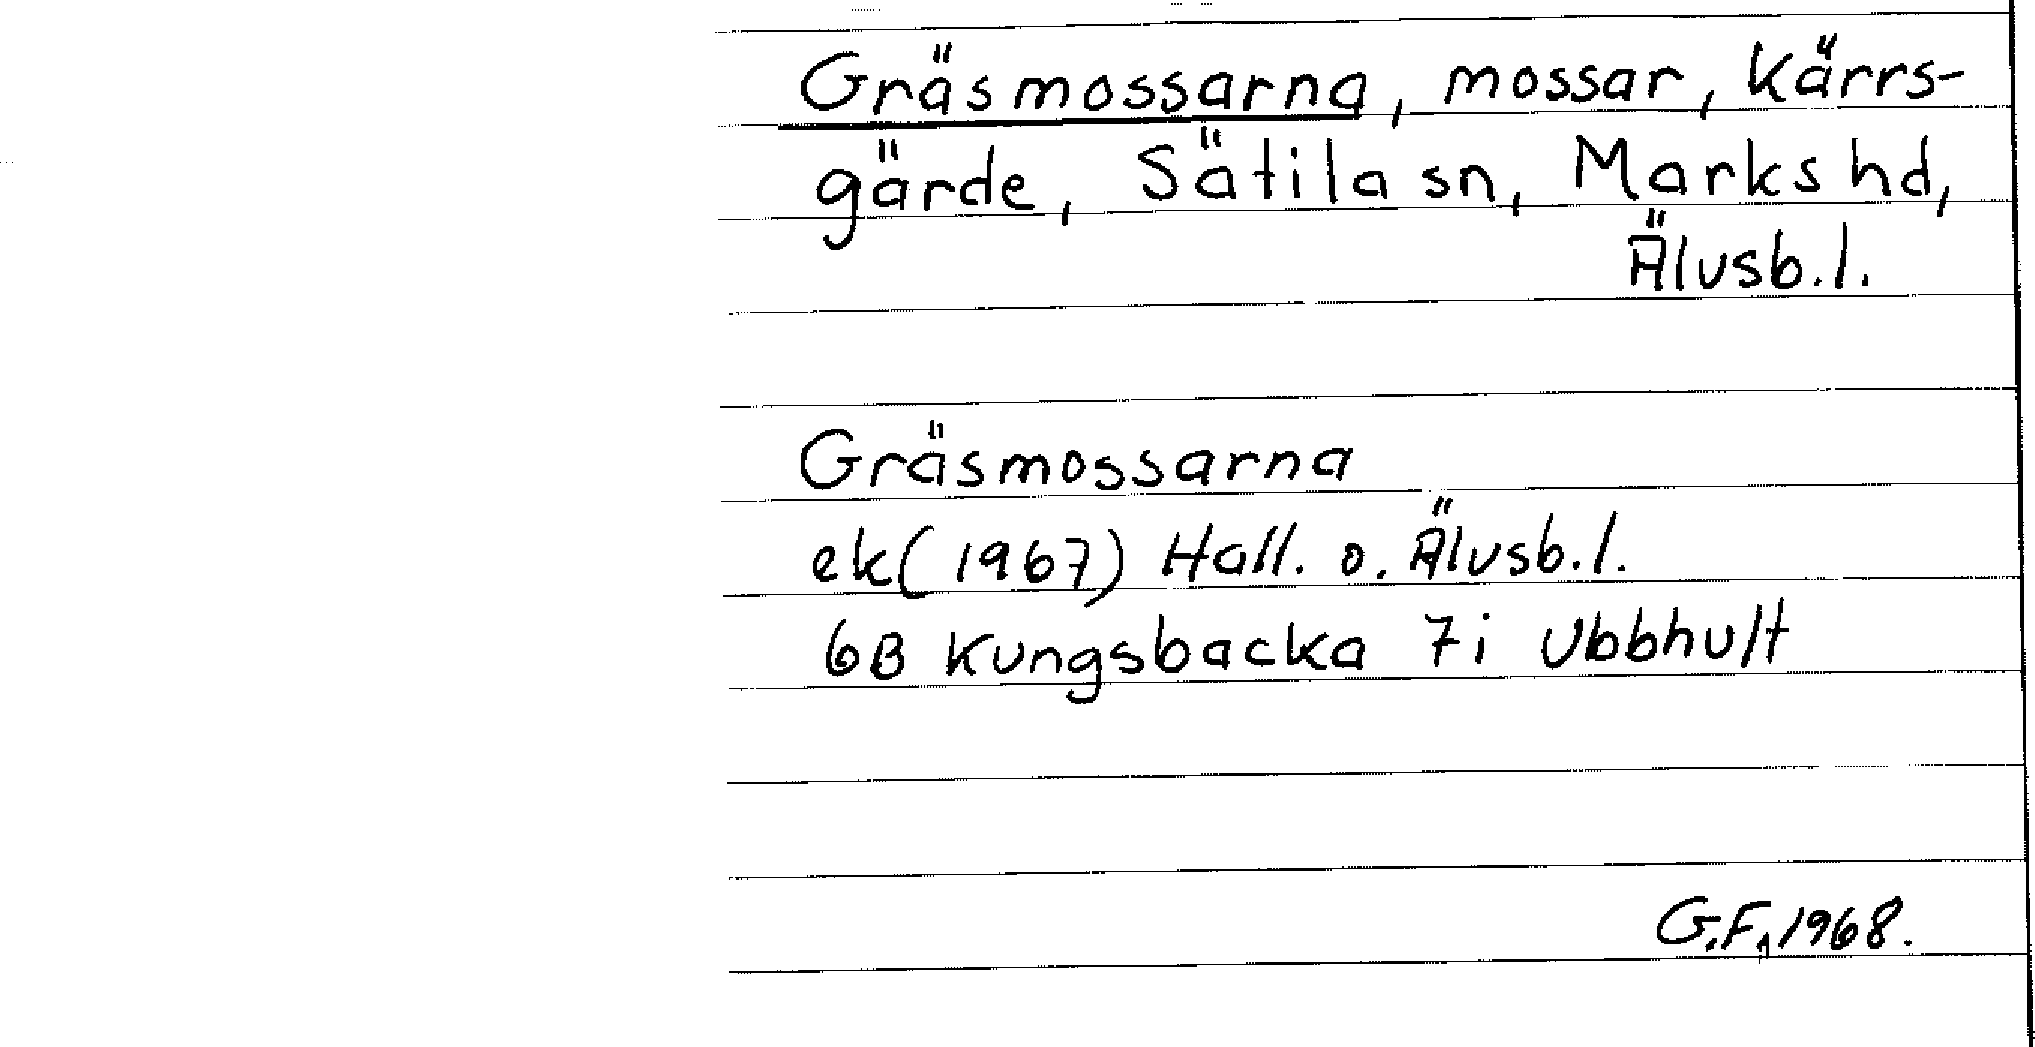 Gräsmossarna, mossar, Kärrs-
gärde, Sätila sn, Marks hd,
Älvsb.l.
Gräsmossarna
ek(1967) Hall. o. Älvsb.l.
6B Kungsbacka 7i Ubbhult
G.F, 1968.